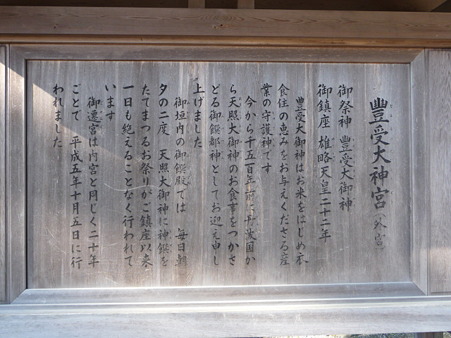 豐受大神宮（外宮）
御祭神　豐受大御神
御鎮座　雄略天皇二十二年
豐受大御神はお米をはじめ衣
食住の恵みをお与えくださる産
業の守護神です
今から千五百年前に丹波国か
ら天照大御神のお食事をつかさ
どる御饌都神としてお迎え申し
上げました
御垣内の御饌殿では　毎日朝
夕の二度　天照大御神に神饌を
たてまつるお祭りがご鎮座以来
一日も絶えることなく行われて
います
御遷宮は内宮と同じく二十年
ごとで　平成五年十月五日に行
われました